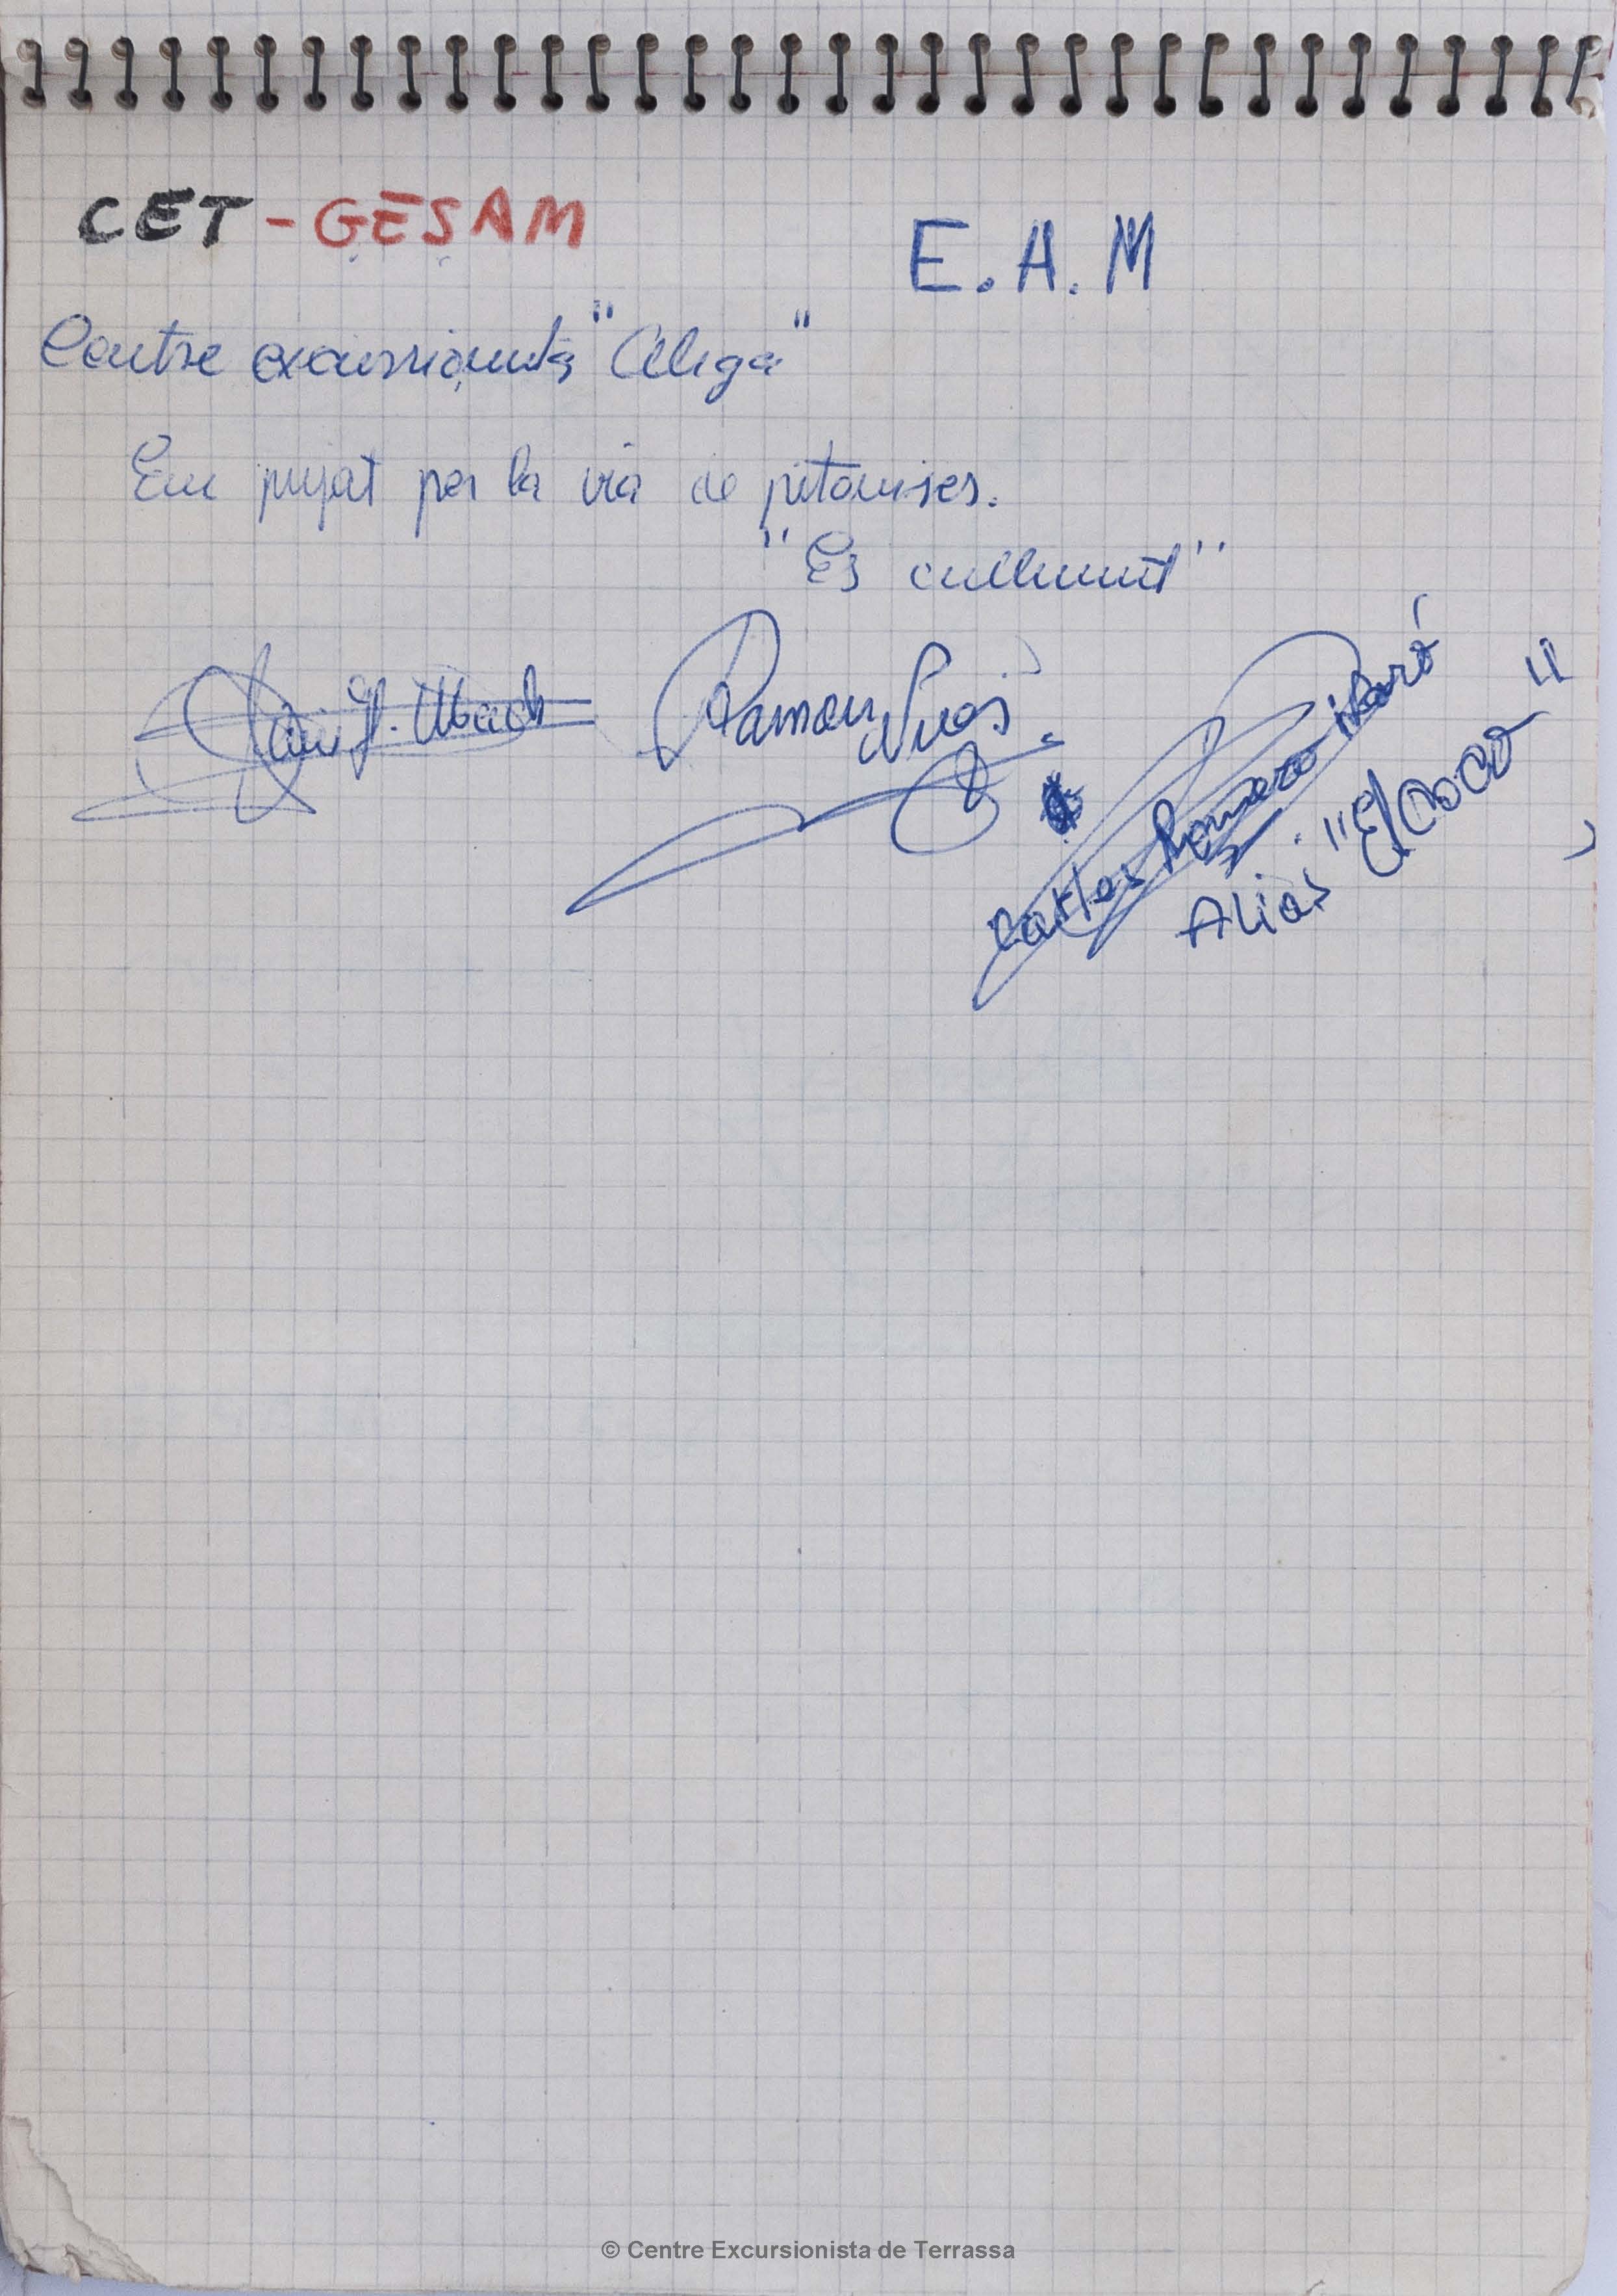 CET - GESAM
E. A. M
Centre excursionista "Aliga"
Em pujat per la via de pitonises.
"Es cullunut"
Ramon
Carlos Romero
Alias "El Roco"
© Centre Excursionista de Terrassa